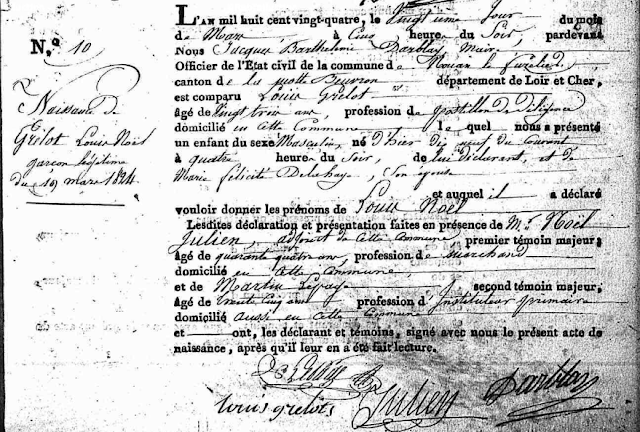 N.º 10
Naissance de
Grelot Louis Noël
garçon légitime
du 19 mars 1824.
L'AN mil huit cent vingt-quatre, le vingtième Jour du mois
de Mars à Cinq heure du Soir, pardevant
Nous Jacques Barthelemie Darblay, Maire
Officier de l'État civil de la commune de Nouan le fuzelier
canton de la motte Beuvron département de Loir et Cher,
est comparu Louis Grelot
âgé de Vingt trois ans, profession de postillon de diligence
domicilié en cette Commune lequel nous a présenté
un enfant du sexe Masculin, né d'hier dix neuf du Courant
à quatre heure du Soir, de lui déclarant, et de
Marie félicité Delahay, Son épouse
et auquel il a déclaré
vouloir donner les prénoms de Louis Noël
Lesdites déclaration et présentation faites en présence de M.r Noël
Julien, adjoint de cette Commune, premier témoin majeur,
âgé de quarante quatre ans, profession de marchand
domicilié en cette Commune
et de Martin Lepage second témoin majeur,
âgé de trente cinq ans profession d'Instituteur primaire
domicilié aussi en cette Commune
et ont, les déclarant et témoins, signé avec nous le présent acte de
naissance, après qu'il leur en a été fait lecture.
louis grelot
Julien
Darblay